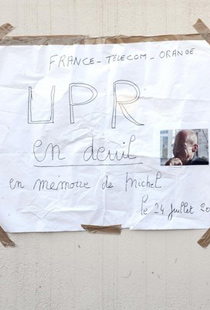 FRANCE-TÉLÉCOM-ORANGE
UPR
en deuil
en mémoire de Michel
le 24 Juillet